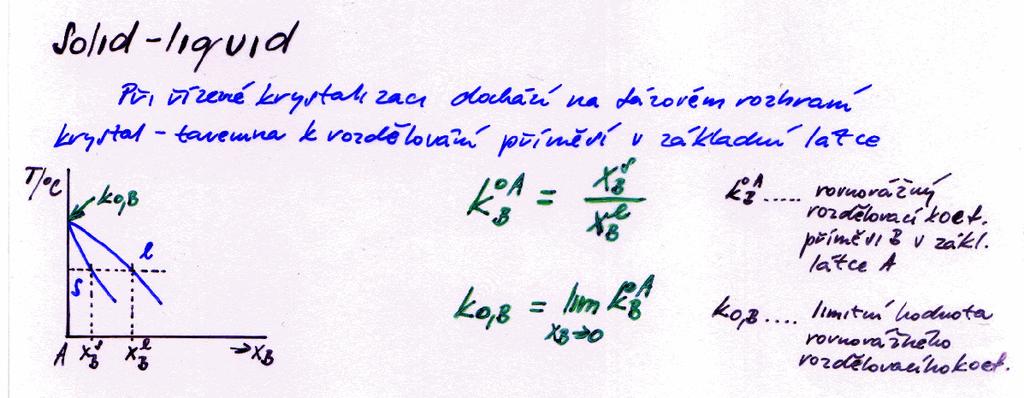 Solid-liquid
Při řízené krystalizaci dochází na fázovém rozhraní
krystal - tavenina k rozdělování příměsí v základní látce
T/°C
k0,B
l
s
A xBs xBl → xB
kB°A = xBs / xBl
k0,B = lim kB°A
xB→0
kB°A ..... rovnovážný
rozdělovací koef.
příměsi B v zákl.
látce A
k0,B .... limitní hodnota
rovnovážného
rozdělovacího koef.